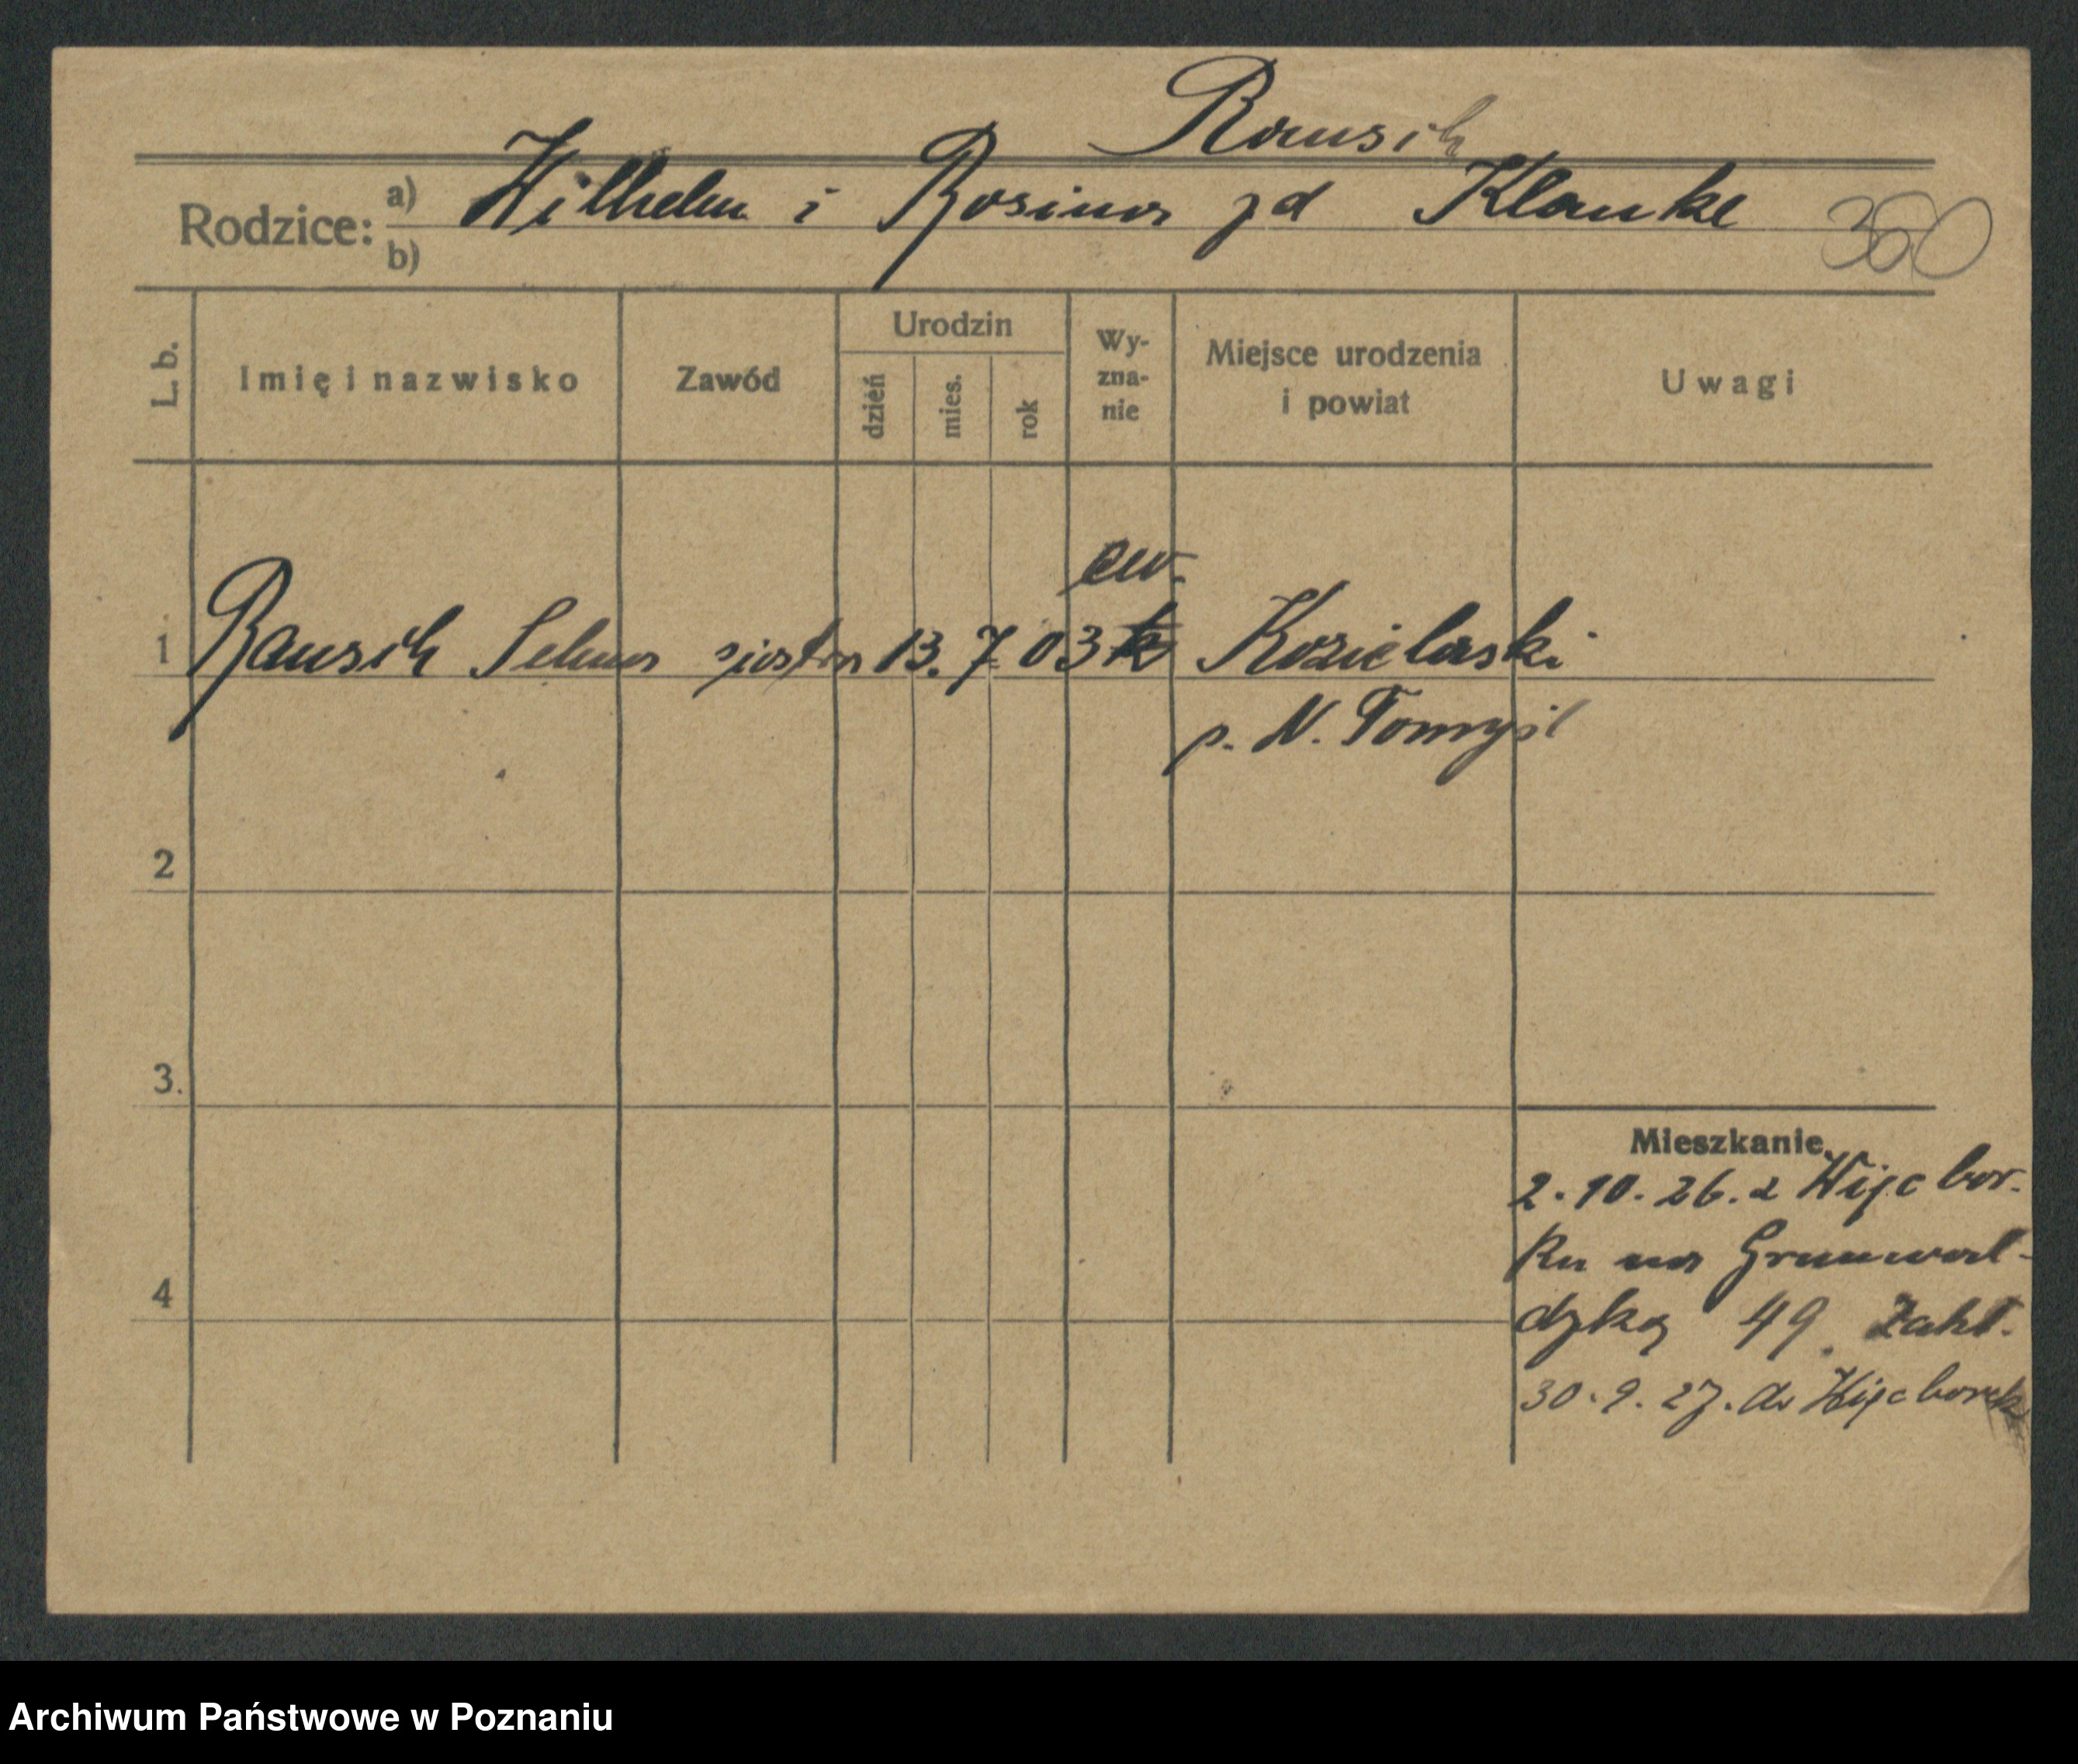 Rausch
Rodzice: a) Wilhelm i Rosina zd Klauke
b)
360
L. b. Imię i nazwisko Zawód Urodzin dzień mies. rok Wy-zna-nie Miejsce urodzenia i powiat Uwagi
ew.
1 Rausch Selma siostra 13. 7 03 k Kozielaski
p. N. Tomyśl
2
3.
Mieszkanie
2. 10. 26. z Więcbor-
ku na Grunwal-
4 dzką 49. Zakł.
30. 9. 27. do Więcbork
Archiwum Państwowe w Poznaniu